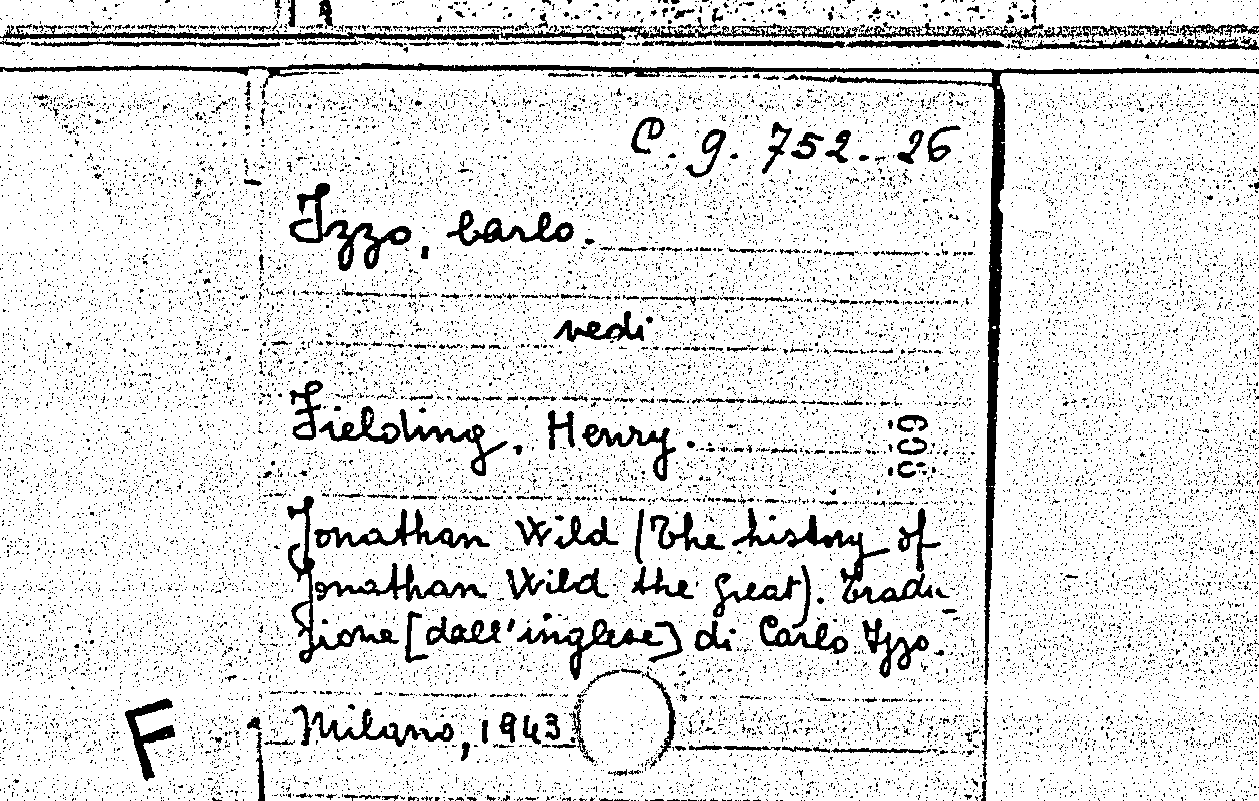 C. g. 752. 26
Izzo, Carlo.
vedi
Fielding, Henry.
Jonathan Wild (The history of
Jonathan Wild the great). Tradu-
zione [dall'inglese] di Carlo Izzo.
Milano, 1943.
F